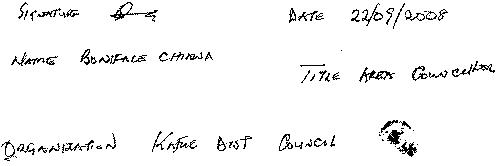 SIGNATURE DATE 22/09/2008
NAME BONIFACE CHIRWA
TITLE AREA COUNCILLOR
ORGANIZATION KAFUE DIST COUNCIL